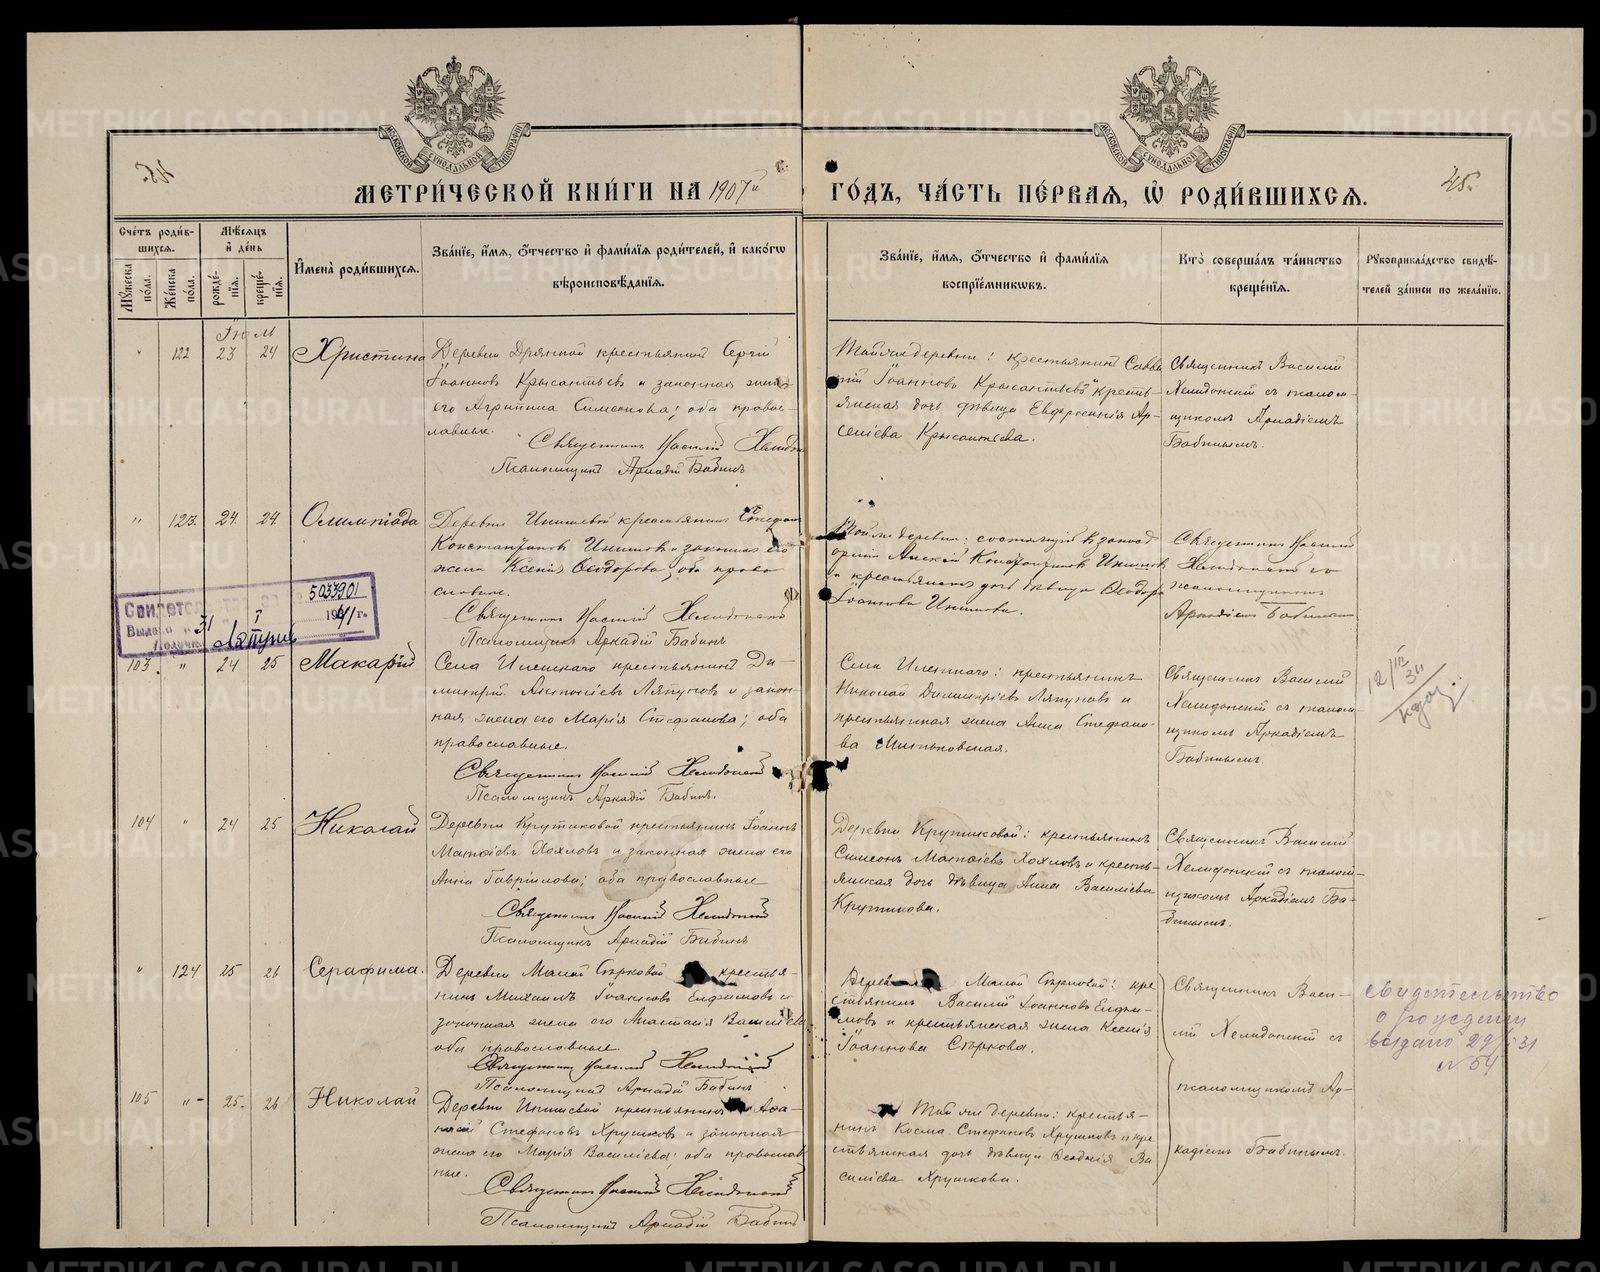 45.
МЕТРИ́ЧЕСКОЙ КНИ́ГИ НА 1907й
ГО́ДЪ, ЧА́СТЬ ПЕ́РВАЯ, Ѡ РОДИ́ВШИХСЯ.
45.
Сче́тъ роди́в-
шихся.
Му́жеска по́ла.
Же́нска по́ла.
Мѣ́сяцъ и де́нь
рожде́-
нїя.
креще́-
нїя.
И҆мена̀ роди́вшихся.
Зва́нїе, и҆́мя, ѻ҆́тчество и҆ фами́лїя роди́телей, и҆ како́гѡ
вѣроисповѣ́данїя.
Зва́нїе, и҆́мя, ѻ҆́тчество и҆ фами́лїя
воспрїе́мниковъ.
Кто̀ соверша́лъ та́инство
креще́нїя.
Рꙋкоприкла́дство свидѣ́-
телей за́писи по жела́нїю.
122
23 24
Христина
крестьянинъ Сергій
Іоанновъ Крысантьевъ и законная жена
его Агрипина Симеонова; оба право-
славные.
Священникъ Василій
Псаломщикъ Аркадій Бабинъ
Той же деревни: крестьянинъ Савва-
тій Іоанновъ Крысантьевъ и кресть-
янская дочь дѣвица Евфросинія Ар-
сеніева Крысантьева.
Священникъ Василій
Хелидонскій съ псалом-
щикомъ Аркадіемъ
Бабинымъ.
" 123. 24. 24.
Олимпіада
Деревни крестьянинъ Стефанъ
Константиновъ и законная его
жена Ксенія Ѳеодорова, оба право-
славные.
Священникъ Василій Хелидонскій
Псаломщикъ Аркадій Бабинъ
Той же деревни: состоящій въ запасѣ
арміи Алексій
и крестьянская дочь дѣвица Ѳеодора
Іоаннова
Священникъ Василій
Хелидонскій со
псаломщикомъ
Аркадіемъ Бабинымъ
5033901
31
Ляпунов
103. " 24 25
Макарій
Села крестьянинъ Ди-
митрій Антоніевъ Ляпуновъ и закон-
ная жена его Марія Стефанова; оба
православные.
Священникъ Василій Хелидонскій
Псаломщикъ Аркадій Бабинъ.
Села крестьянинъ
Николай Димитріевъ Ляпуновъ и
крестьянская жена Анна Стефано-
ва
Священникъ Василій
Хелидонскій съ псалом-
щикомъ Аркадіемъ
Бабинымъ.
104 " 24 25
Николай
Деревни Крутиковой крестьянинъ Іоаннъ
Матѳіевъ Хохловъ и законная жена его
Анна Гавріилова; оба православные
Священникъ Василій Хелидонскій
Псаломщикъ Аркадій Бабинъ
Деревни Крутиковой: крестьянинъ
Симеонъ Матѳіевъ Хохловъ и кресть-
янская дочь дѣвица Анна Василіева
Крутикова.
Священникъ Василій
Хелидонскій съ псалом-
щикомъ Аркадіемъ Ба-
бинымъ.
" 124 25 26
Серафима.
Деревни Малой Сѣрковой крестья-
нинъ Михаилъ Іоанновъ Елфимовъ и
законная жена его Анастасія Василіева
оба православные.
Священникъ Василій Хелидонскій
Псаломщикъ Аркадій Бабинъ
Малой Сѣрковой: кре-
стьянинъ Василій Іоанновъ Елфи-
мовъ и крестьянская жена Ксенія
Іоаннова Сѣркова.
Священникъ Васи-
лій Хелидонскій съ
псаломщикомъ Ар-
кадіемъ Бабинымъ.
свидетельство
о рождении
выдано 29
N 54
105 " 25. 26
Николай
Деревни крестьянинъ Аѳа-
насій Стефановъ Хрушковъ и законная
жена его Марія Василіева; оба православ-
ные.
Священникъ Василій Хелидонскій
Псаломщикъ Аркадій Бабинъ
Той же деревни: крестья-
нинъ Косма Стефановъ Хрушковъ и кре-
стьянская дочь дѣвица Ва-
силіева Хрушкова.
METRIKI.GASO-URAL.RU